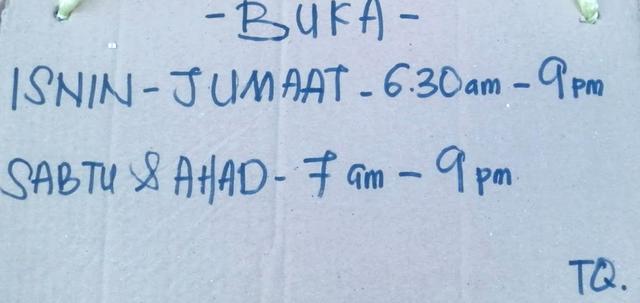 - BUKA -
ISNIN - JUMAAT - 6.30am - 9pm
SABTU & AHAD - 7am - 9pm
TQ.